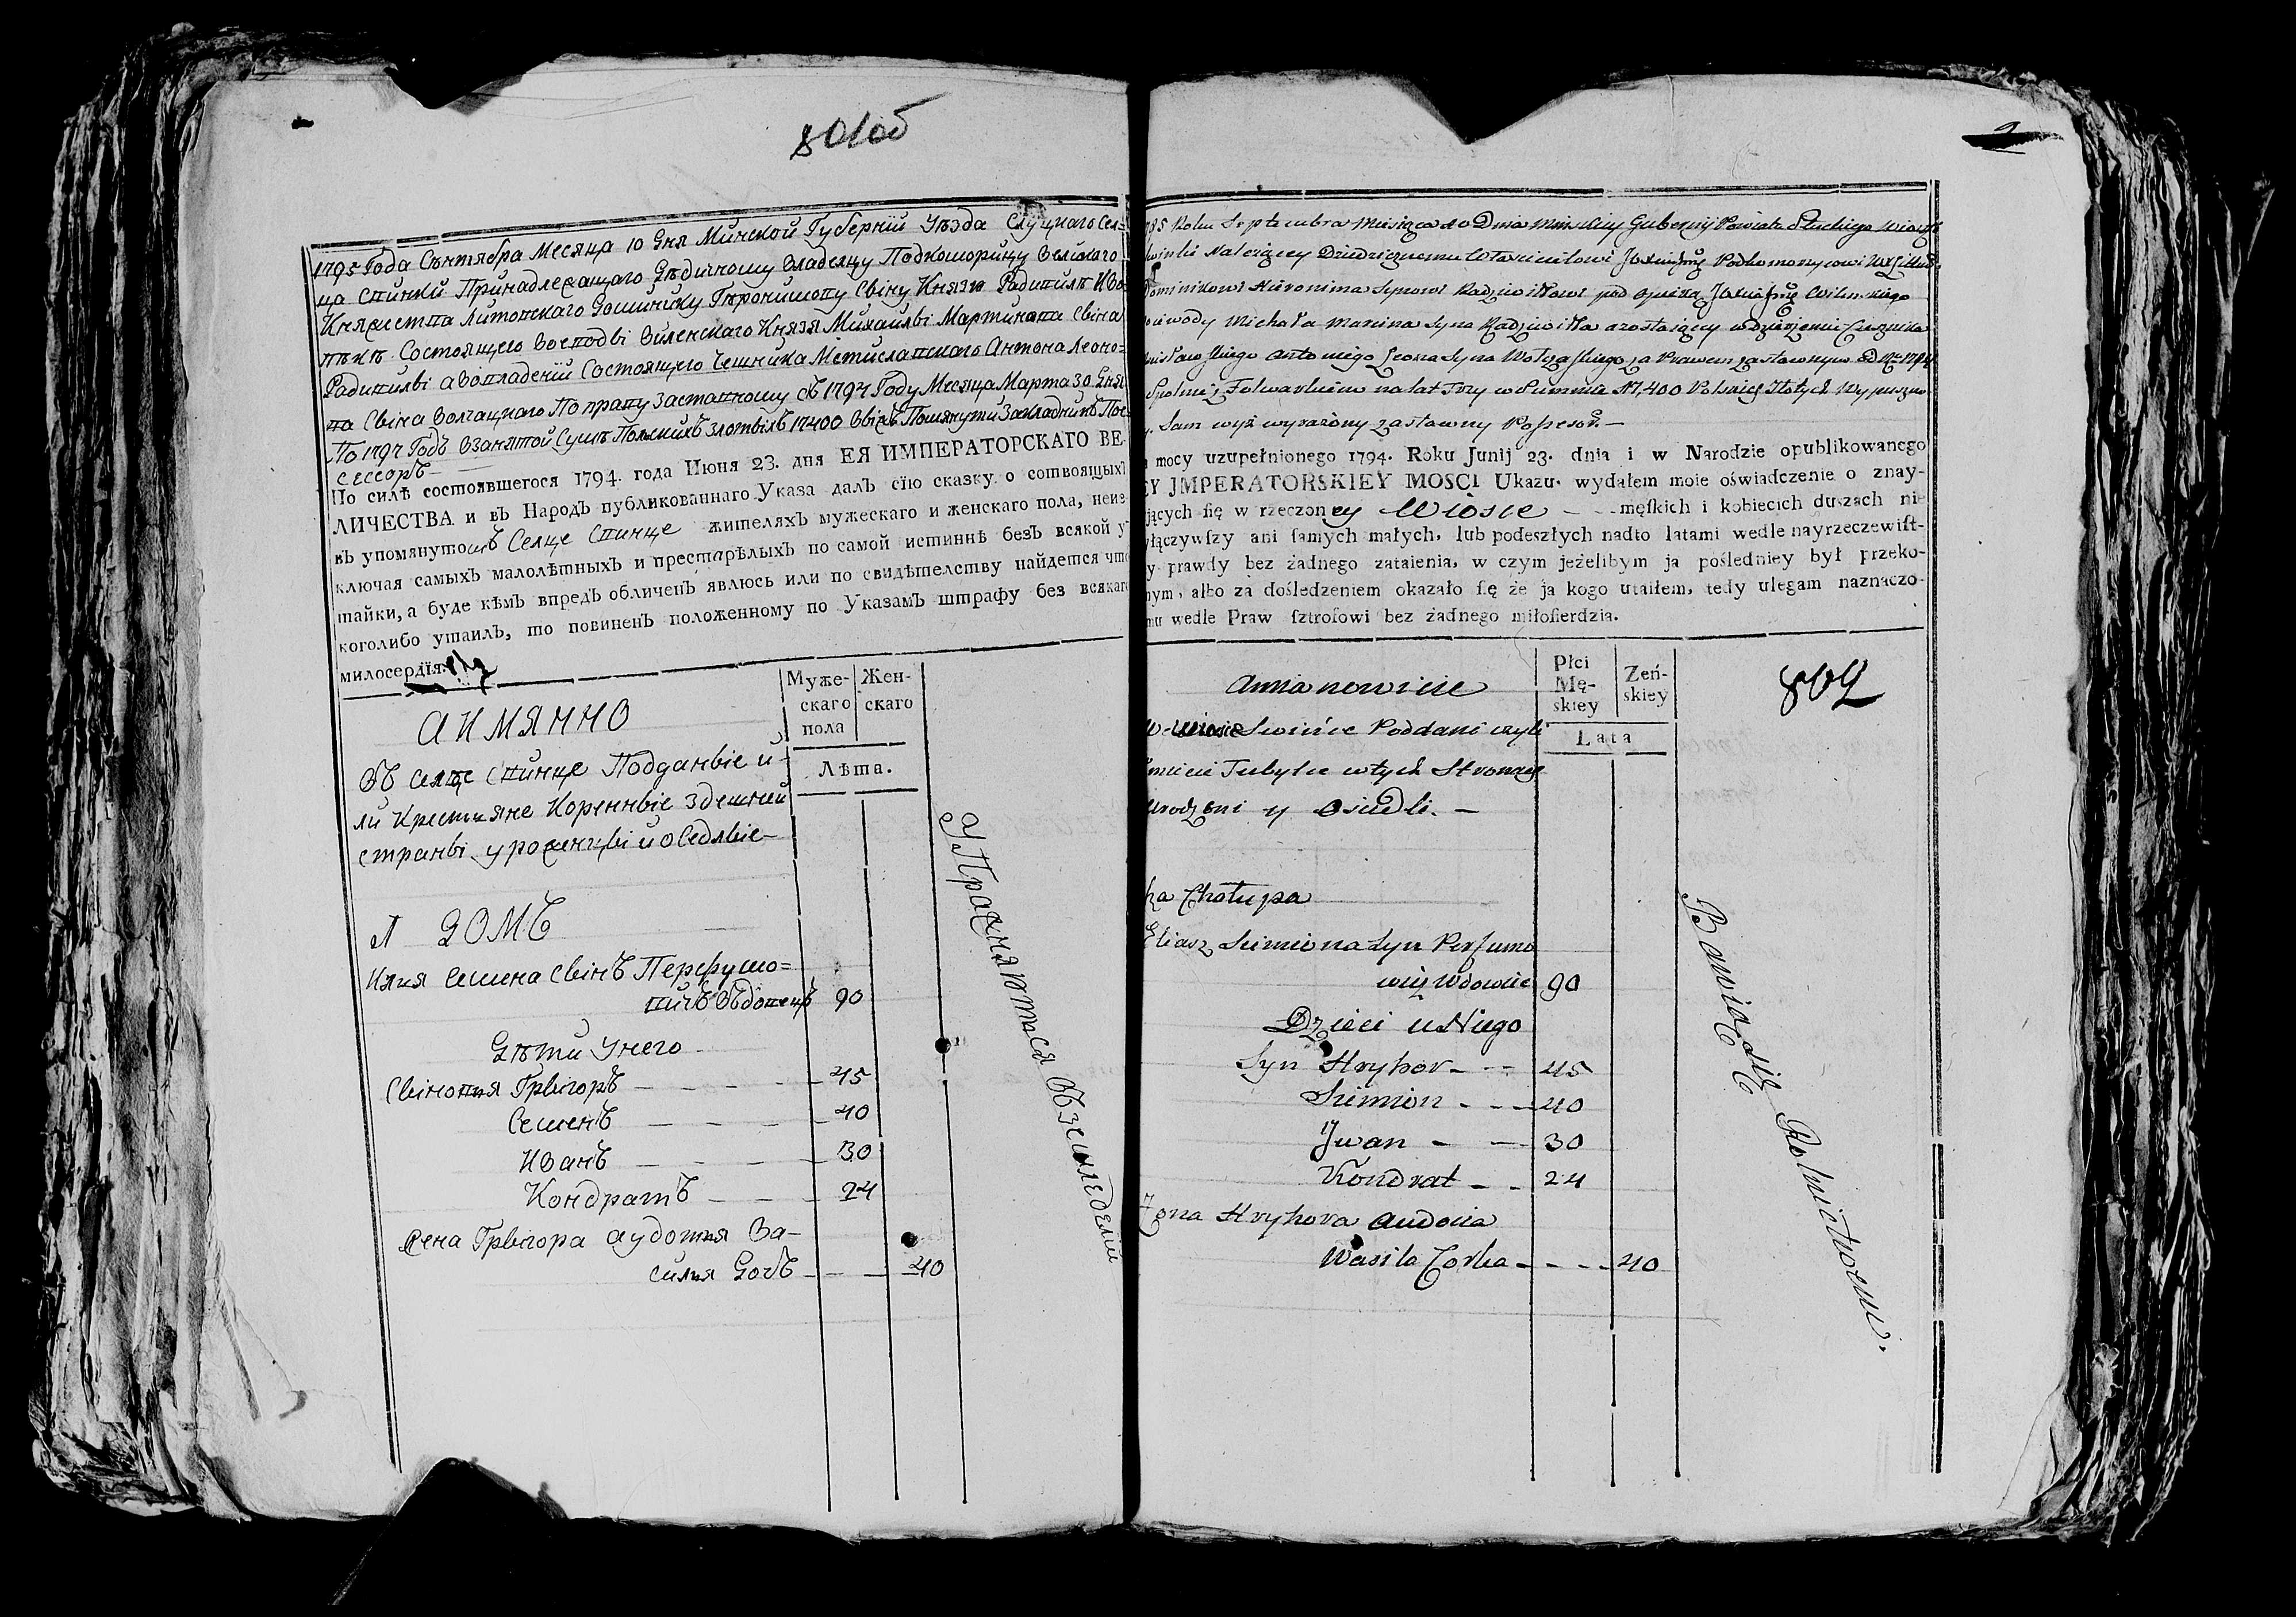 801об
1795 Года Сентября Месяца 10 Дня Минской Губернїи Уѣзда Слуцкаго Сел=
ца Свинки Принадлежащаго Дѣдичному Владелцу Подкоморицу Великого
Княжества Литовскаго Доминику Геронимову Сыну Князю Радивилѣ
Состоящего Воеводы Виленскаго Князя Михаилы Мартинова Сына
Радивилы а во владенїи Состоящего Чешника Мстиславскаго Антона Леоно=
ва Сына Волчацкаго По праву Заставному съ 1794 Году Месяца Марта 30 Дня
По 1797 Годъ Взанятой Сумѣ Полскихъ злотыхъ 17400
сессоръ
По силѣ состоявшегося 1794. года Июня 23. дня ЕЯ ИМПЕРАТОРСКАГО ВЕ-
ЛИЧЕСТВА и въ Народъ публикованнаго Указа далъ сїю сказку о сотвоящыхъ
въ упомянутомъ Селце Свинце жителяхъ мужескаго и женскаго пола, неиз-
ключая самыхъ малолѣтныхъ и престарѣлыхъ по самой истиннѣ безъ всякой у-
тайки, а буде кѣмъ впредъ обличенъ явлюсь или по свидѣтелству найдется что
коголибо утаилъ, то повиненъ положенному по Указамъ штрафу без всякаго
милосердїя.
Муже-
скаго
пола
Жен-
скаго
Лѣта.
А ИМЯННО
Въ селце Свинце Подданые и-
ли Крестьяне Коренные здешней
страны уроженцы и оседлые
1 ДОМЪ
Илия Семена Сынъ Перфумо=
вичъ Вдовецъ 90
Дѣти У него
Сыновья Грыгоръ 45
Семенъ 40
Иванъ 30
Кондратъ 24
Жена Грыгора Аудотья Ва-
силья Дочъ 40
Упражняються Вземледелїи
795 Roku Septembra Miesiąca 10 Dnia Minskiey Gubernij Powiatu Słuckiego Wioska
Swinki Należącey Dziedzicznemu Właścicielowi Podkomorzycowi
Dominikowi Hieronima Synowi Radziwiłłowi pod opieką Wilenskiego
Woiewody Michała Marcina Syna Radziwiłła a zostaiącey w dzierżeniu Czesznika
Antoniego Leona Syna za Prawem zastawnym
Folwarkiem na lat Trzy w Summie 17,400 Polskich Złotych
Sam wyż wyrażony zastawny Possesor.
mocy uzupełnionego 1794. Roku Junij 23. dnia i w Narodzie opublikowanego
EY JMPERATORSKIEY MOSCI Ukazu. wydałem moie oświadczenie o znay-
jących się w rzeczoney Wiosce męſkich i kobiecich duszach nie
yłączywſzy ani ſamych małych, lub podeszłych nadto latami wedle nayrzeczewiſt-
y prawdy bez żadnego zataienia, w czym jeżelibym ja pośledniey był przeko-
nym, albo za dośledzeniem okazało ſię że ja kogo utaiłem, tedy ulegam naznaczo-
mu wedle Praw ſztrofowi bez żadnego miłoſierdzia.
Płci
Mę-
skiey
Zeń-
skiey
Lata
802
a mianowicie
We Wiosce Swince Poddani czyli
Tubylce w tych Stronach
urodzeni y Osiedli.
Chałupa
Eliasz Siemiona Syn Perfumo
wicz Wdowiec 90
Dzieci u Niego
Syn Hryhor 45
Siemion 40
Jwan 30
Kondrat 24
Zona Hryhora Audocia
Wasila Corka 40
Bawią się Rolnictwem.